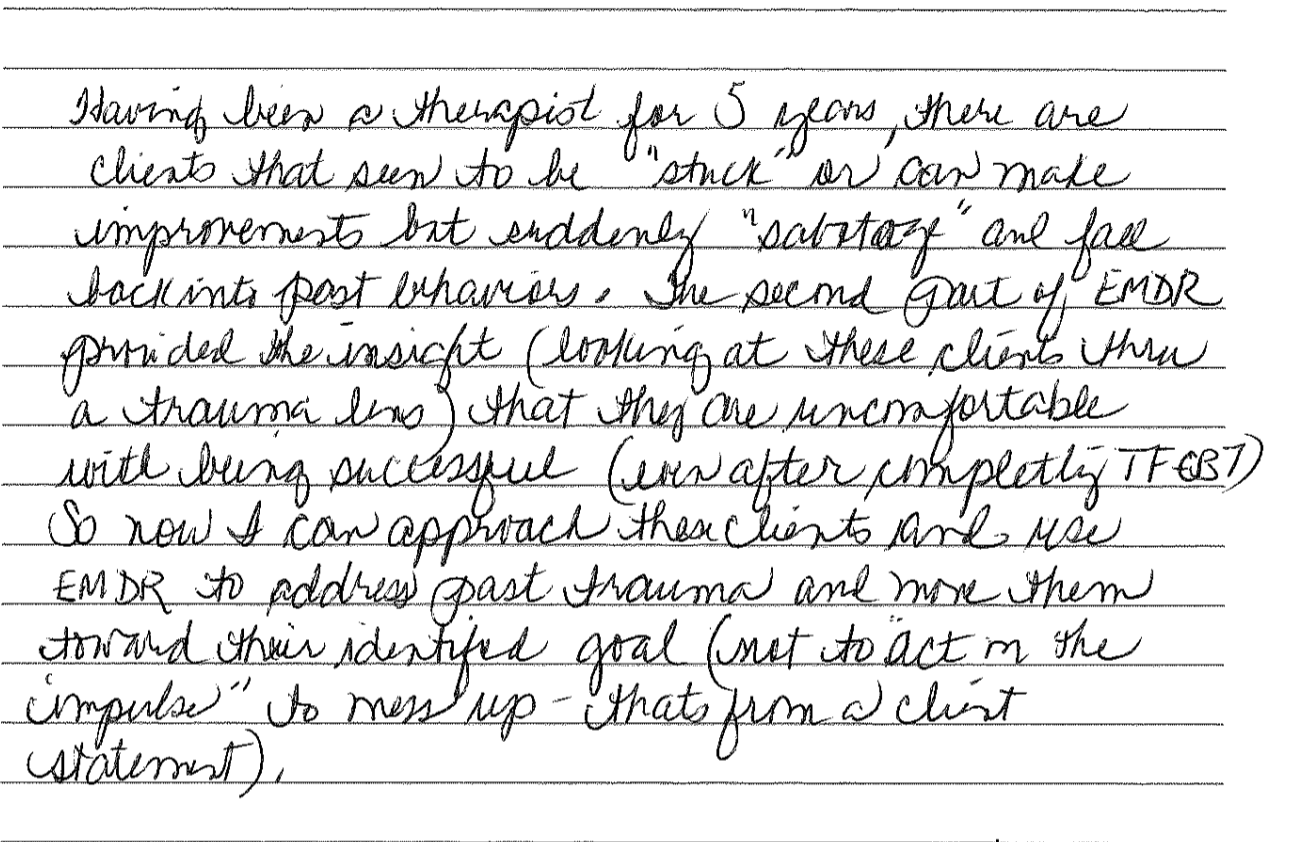 Having been a therapist for 5 years, there are
clients that seem to be "stuck" or can make
improvements but suddenly "sabotage" and fall
back into past behaviors. The second part of EMDR
provided the insight (looking at these clients thru
a trauma lens) that they are uncomfortable
with being successful (even after completly TFCBT)
So now I can approach these clients and use
EMDR to address past trauma and move them
toward their identifed goal (not to "act on the
impulse" to mess up - thats from a client
statement).